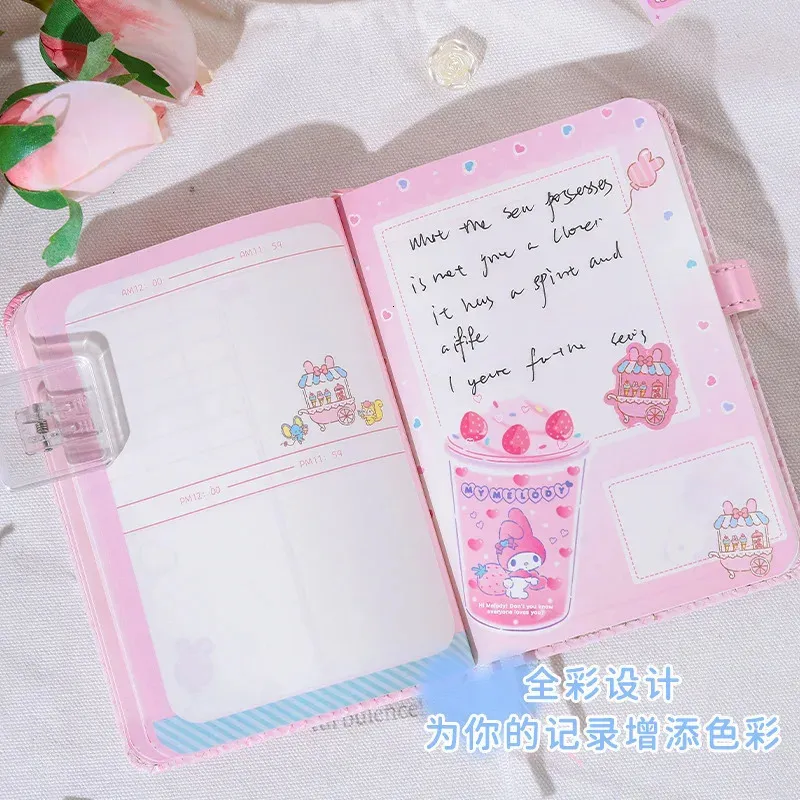 AM12: 00 AM11: 59
PM12: 00 PM11: 59
what the sea possesses
is not give a lover
it has a spirit and
a life
I yeure for the
MY MELODY
Hi Melody! Don't you know
everyone loves you?
turbulence
全彩设计
为你的记录增添色彩